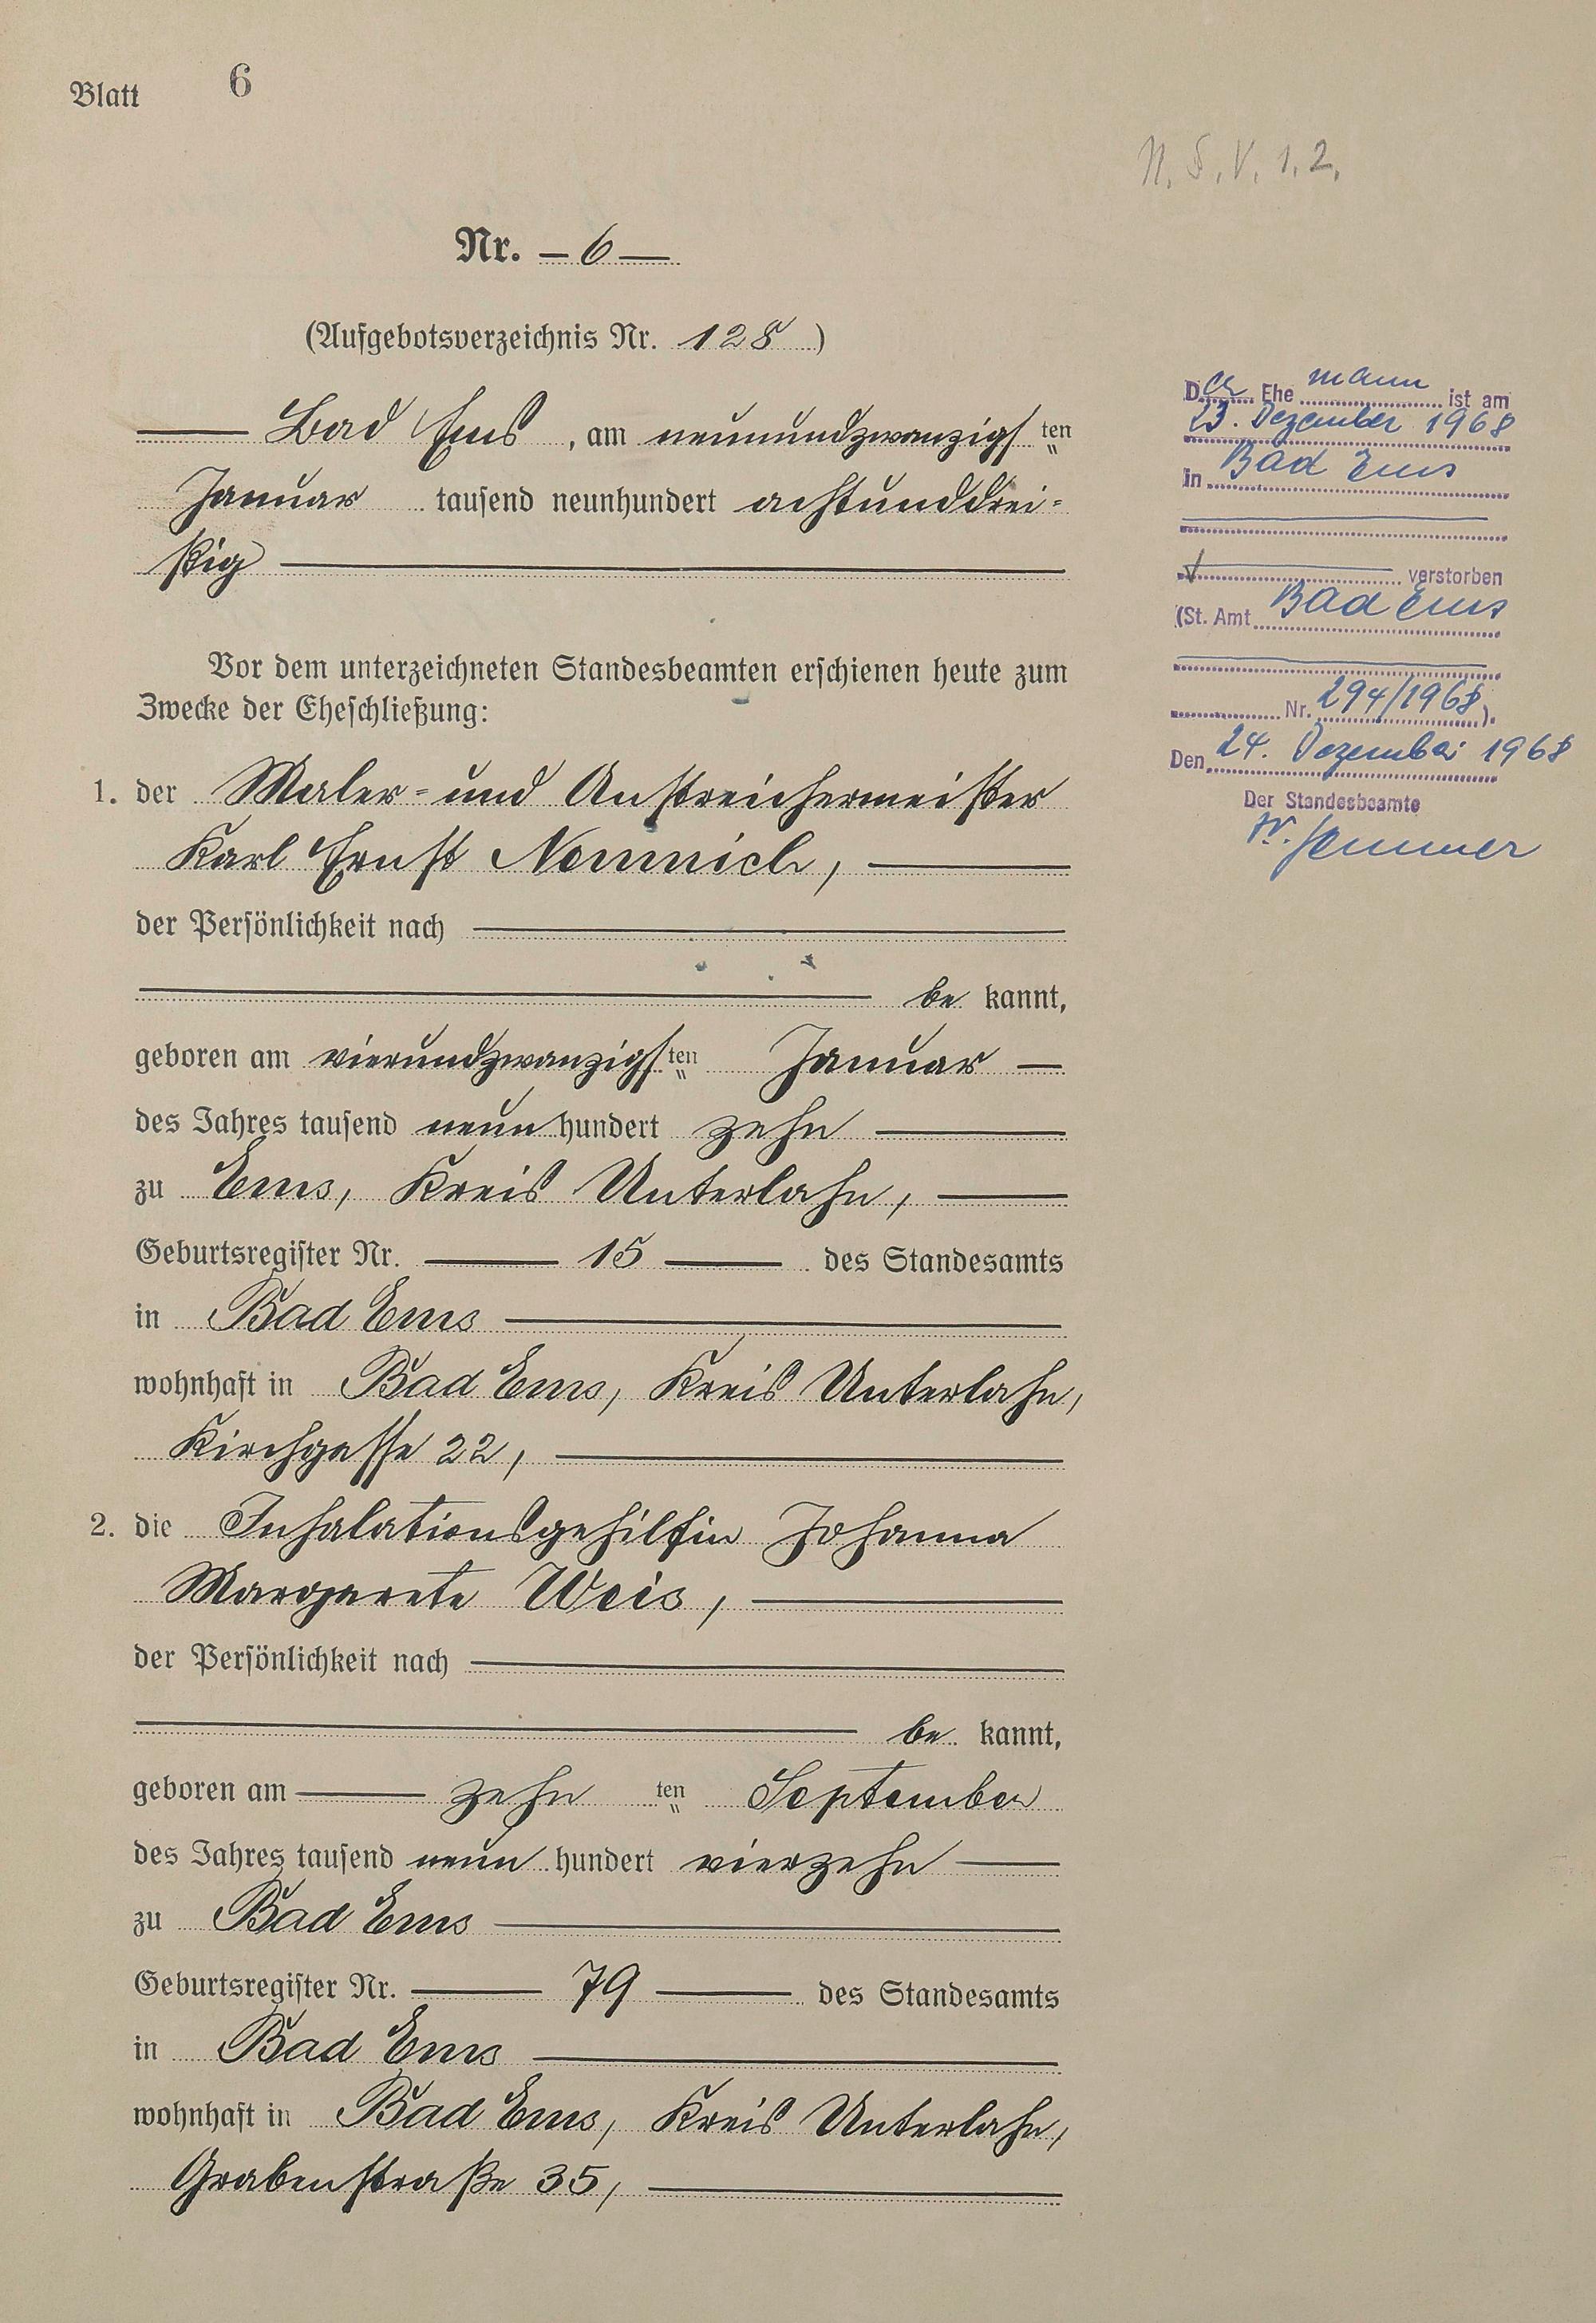 Blatt 6
N. S. V. 1. 2.
Nr. — 6 —
(Aufgebotsverzeichnis Nr. 128)
Bad Ems, am neunundzwanzigsten
Januar tausend neunhundert achtunddrei=
ßig
Vor dem unterzeichneten Standesbeamten erschienen heute zum
Zwecke der Eheschließung:
1. der Maler= und Anstreichermeister
Karl Ernst Nemnich,
der Persönlichkeit nach
be kannt,
geboren am vierundzwanzigsten Januar
des Jahres tausend neun hundert zehn
zu Ems, Kreis Unterlahn,
Geburtsregister Nr. 15 des Standesamts
in Bad Ems
wohnhaft in Bad Ems, Kreis Unterlahn,
Kirchgasse 22,
2. die Inhalationsgehilfin Johanna
Margarete Weis,
der Persönlichkeit nach
be kannt,
geboren am zehn ten September
des Jahres tausend neun hundert vierzehn
zu Bad Ems
Geburtsregister Nr. 79 des Standesamts
in Bad Ems
wohnhaft in Bad Ems, Kreis Unterlahn,
Grabenstraße 35,
Der Ehe mann ist am
23. Dezember 1968
in Bad Ems
verstorben
(St. Amt Bad Ems
Nr. 294/1968).
Den 24. Dezember 1968
Der Standesbeamte